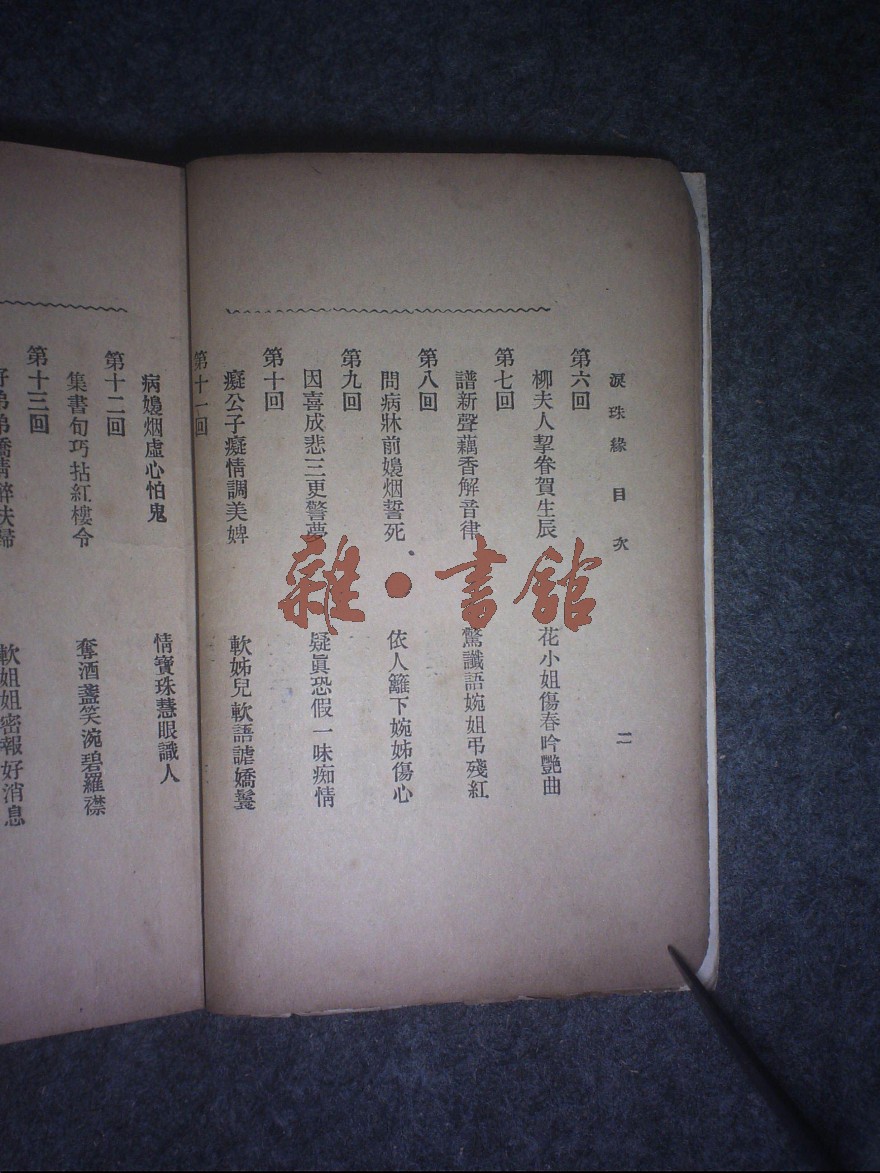 淚珠緣 目次 二
第六回
柳夫人挈眷賀生辰 花小姐傷春吟艷曲
第七回
譜新聲藕香解音律 驚讖語婉姐弔殘紅
第八回
問病牀前嫚烟誓死 依人籬下婉姊傷心
第九回
因喜成悲三更警夢 疑眞恐假一味痴情
第十回
癡公子癡情調美婢 軟姊兒軟語謔嬌鬟
第十一回
病嫚烟虛心怕鬼 情寶珠慧眼識人
第十二回
集書句巧拈紅樓令 奪酒盞笑涴碧羅襟
第十三回
好弟弟嬌情醉扶歸 軟姐姐密報好消息
雜·書館